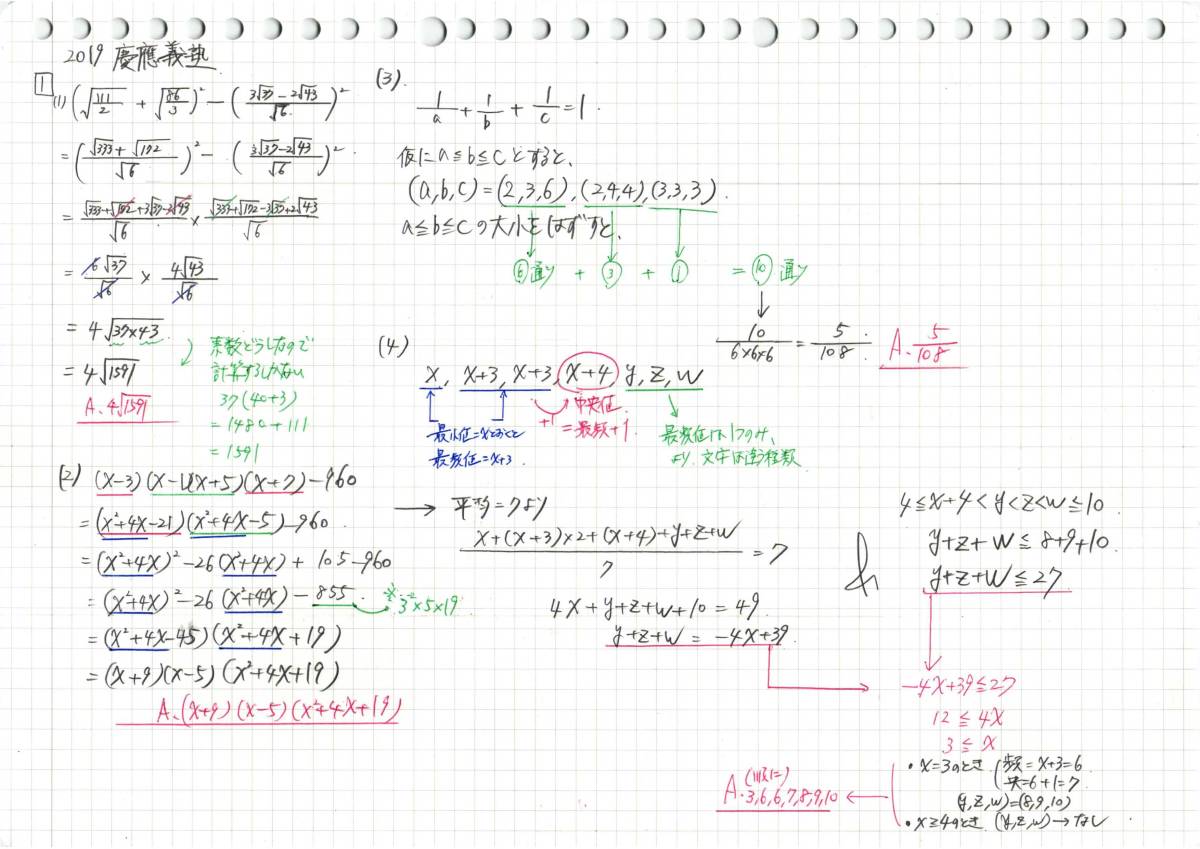 2019 慶應義塾
1
(1) (√(111/2) + √(86/3))² − ((3√37 − 2√43)/√6)²
= ((√333 + √172)/√6)² − ((3√37 − 2√43)/√6)²
= (√333 + √172 + 3√37 − 2√43)/√6 × (√333 + √172 − 3√37 + 2√43)/√6
= 6√37/√6 × 4√43/√6
= 4√(37×43)
= 4√1591
A. 4√1591
素数どうしなので
計算するしかない
37(40+3)
= 1480+111
= 1591
(2) (x−3)(x−1)(x+5)(x+7)−960
= (x²+4x−21)(x²+4x−5)−960
= (x²+4x)²−26(x²+4x)+105−960
= (x²+4x)²−26(x²+4x)−855
※ 3²×5×19
= (x²+4x−45)(x²+4x+19)
= (x+9)(x−5)(x²+4x+19)
A. (x+9)(x−5)(x²+4x+19)
(3).
1/a + 1/b + 1/c = 1
仮に a≦b≦c とすると、
(a,b,c) = (2,3,6), (2,4,4), (3,3,3)
a≦b≦c の大小をはずすと、
⑥通り + ③ + ① = ⑩通り
10/(6×6×6) = 5/108
A. 5/108
(4)
x, x+3, x+3, x+4, y, z, w
最小値=xとおくと
最頻値=x+3
+1
中央値
=最頻+1
最頻値は1つのみ
より、文字は
→ 平均=7より
(x+(x+3)×2+(x+4)+y+z+w)/7 = 7
4x+y+z+w+10 = 49
y+z+w = −4x+39
&
4≦x+4<y<z<w≦10
y+z+w≦8+9+10
y+z+w≦27
−4x+39≦27
12≦4x
3≦x
・x=3のとき (頻=x+3=6
央=6+1=7
(y,z,w)=(8,9,10)
・x≧4のとき (y,z,w)→なし
(順に)
A. 3,6,6,7,8,9,10